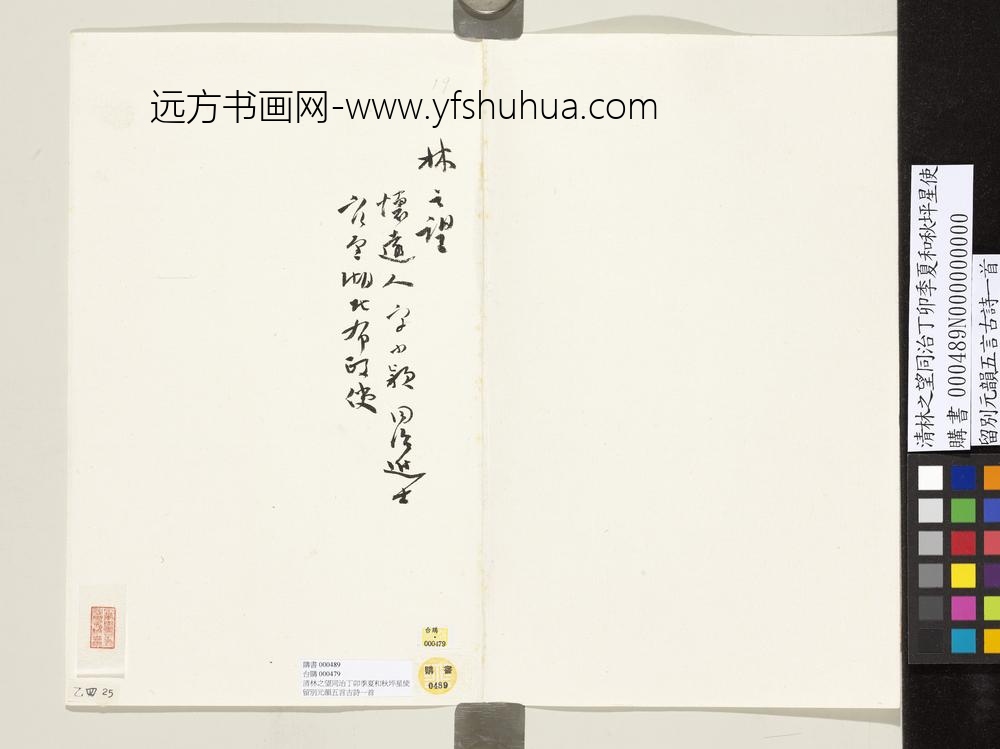 19
远方书画网-www.yfshuhua.com
林之望
懷遠人字小颖同治進士
官至湖北布政使
台購
000479
購書 000489
台購 000479
清林之望同治丁卯季夏和秋坪星使
留別元韻五言古詩一首
購書
0489
乙四 25
清林之望同治丁卯季夏和秋坪星使
購書 000489N000000000
留別元韻五言古詩一首